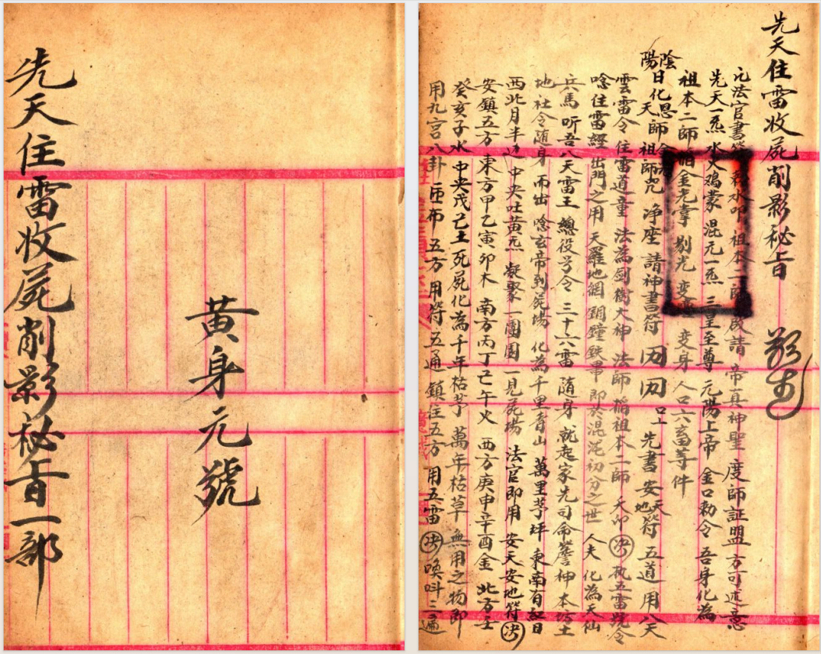 先天住雷收屍削影秘旨一部
黃身元號
先天住雷收屍削影秘旨
法官書符 水卯 祖本二師 啟請 帝真神聖 度師証盟 方可述意
先天一炁 水火鴻蒙 混元一炁 三皇至尊 元陽上帝 金口勅令 吾身化為
祖本二師 金光掌 剔光 变身 人口六畜等件
陰陽日化恩師 天 祖師咒 淨座 請神書符 先書 安天地符 五道 用八天
雲雷令 住雷道童 法為剑樹大神 法師 稱祖本二師 天卯 决 执五雷號令
唸住雷經 出門之用 天羅地網 銅鐘鉄串 即於混沌初分之世 人夫 化為天仙
兵馬 听吾八天雷王 總役号令 三十六雷 隨身 就起家先司命 神 本坊土
地社令隨身 而出 唸玄帝到屍場 化為千里青山 萬里芧坪 東南日
西北月半边 中央吐黃炁 凝聚一團圓 一見屍場 法官即用 安天安地符 决
安鎮五方 東方甲乙寅卯木 南方丙丁巳午火 西方庚申辛酉金 北方壬
癸亥子水 中央戊己土 死屍化為千年枯芧 萬年枯草 無用之物 即
用九宮八卦 匝布 五方 用符五通 鎮住五方 用五雷 决 喚叫三遍